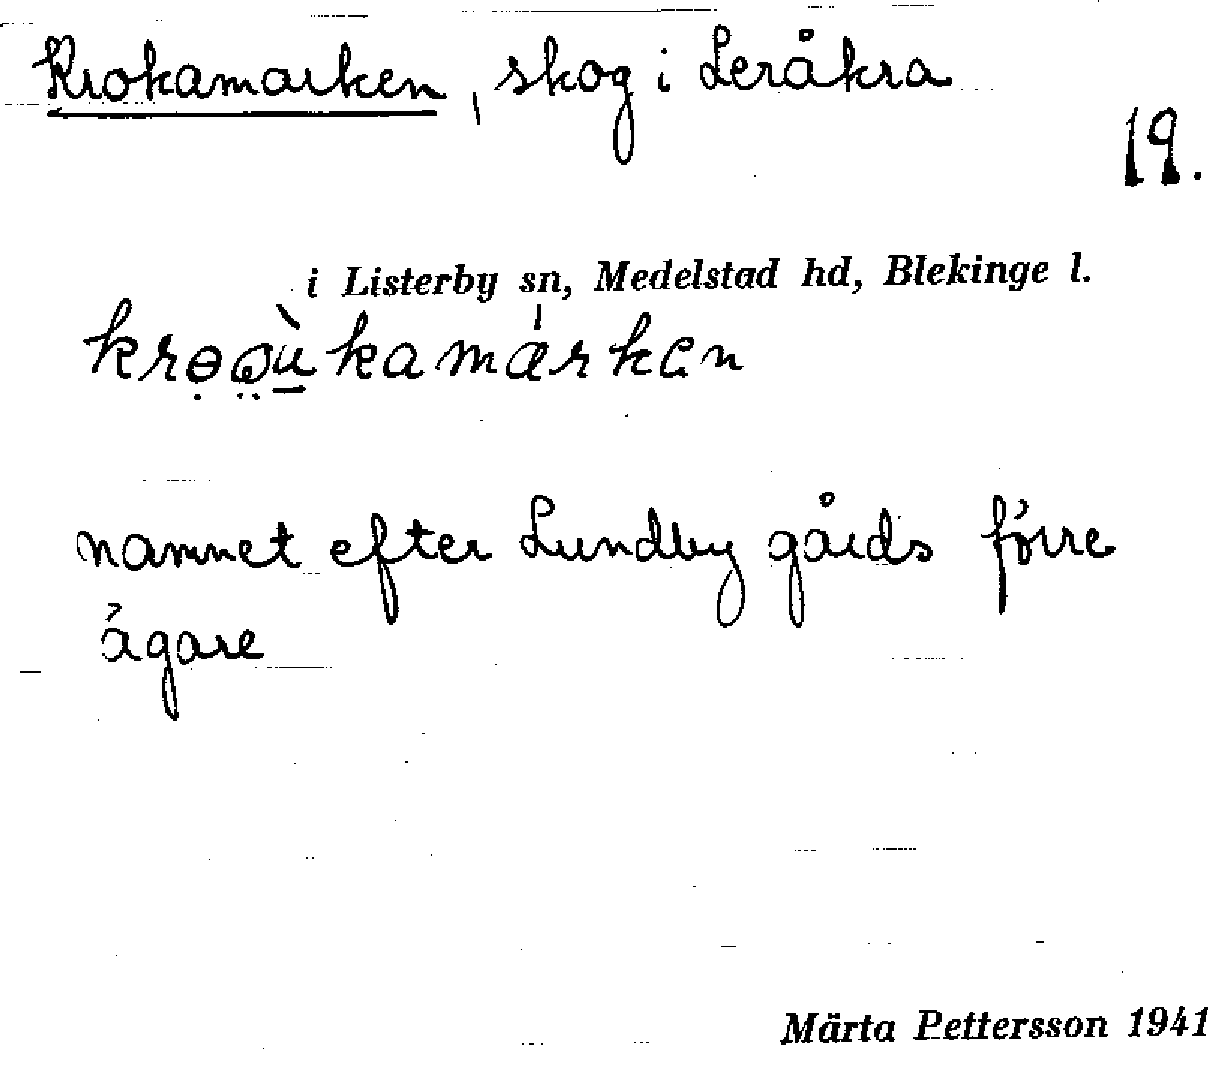 Krokamarken, skog i Leråkra
19.
i Listerby sn, Medelstad hd, Blekinge l.
namnet efter Lundby gårds förre
ägare
Märta Pettersson 1941